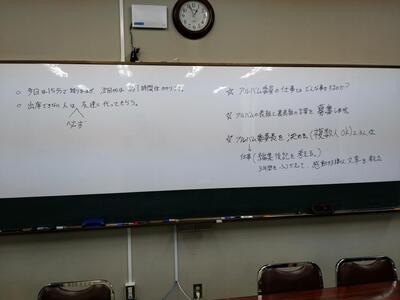 ○ 今日は15分で終わるが、次回は1時間位かかります。
○ 出席できない人は、友達に代ってもらう。
必ず
☆ アルバム委員の仕事はどんな事をするのか?
☆ アルバムの表紙と裏表紙の言葉を募集
☆ アルバム委員長を決める(複数人OK)
仕事(編集後記を考える。)
3年間をふりかえって、感動する様な文章を考える